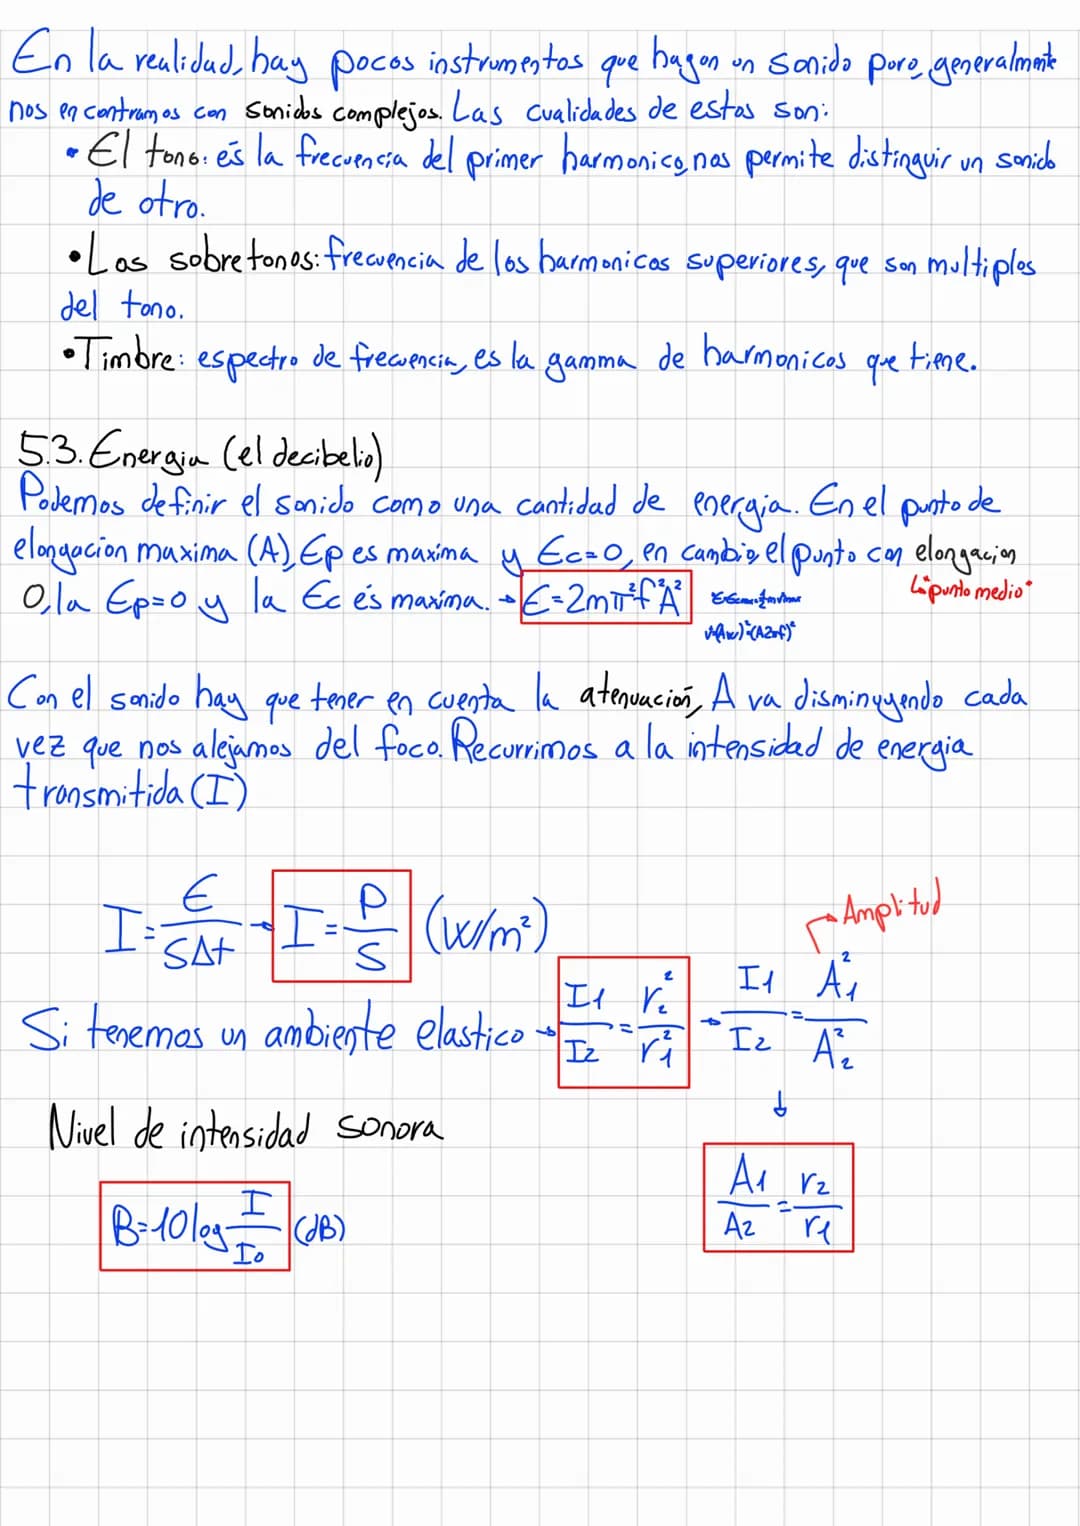 En la realidad, hay pocos instrumentos que hagan un sonido puro, generalmente
nos encontramos con sonidos complejos. Las cualidades de estos son:
• El tono: és la frecuencia del primer harmonico, nos permite distinguir un sonido
de otro.
• Los sobretonos: frecuencia de los harmonicos superiores, que son multiplos
del tono.
• Timbre: espectro de frecuencia, es la gamma de harmonicos que tiene.
5.3. Energia (el decibelio)
Podemos definir el sonido como una cantidad de energia. En el punto de
elongacion maxima (A), Ep es maxima y Ec=0, en cambio, el punto con elongacion
0, la Ep=0 y la Ec és maxima. → E=2mπ²f²A²
↳"punto medio"
v²=(Aw)²=(A2πf)²
Con el sonido hay que tener en cuenta la atenuación, A va disminuyendo cada
vez que nos alejamos del foco. Recurrimos a la intensidad de energia
transmitida (I)
I=E/SΔt → I=P/S (W/m²)
Amplitud
Si tenemos un ambiente elastico → I1/I2=r2²/r1² → I1/I2=A1²/A2²
↓
Nivel de intensidad sonora
A1/A2=r2/r1
B=10log I/I0 (dB)